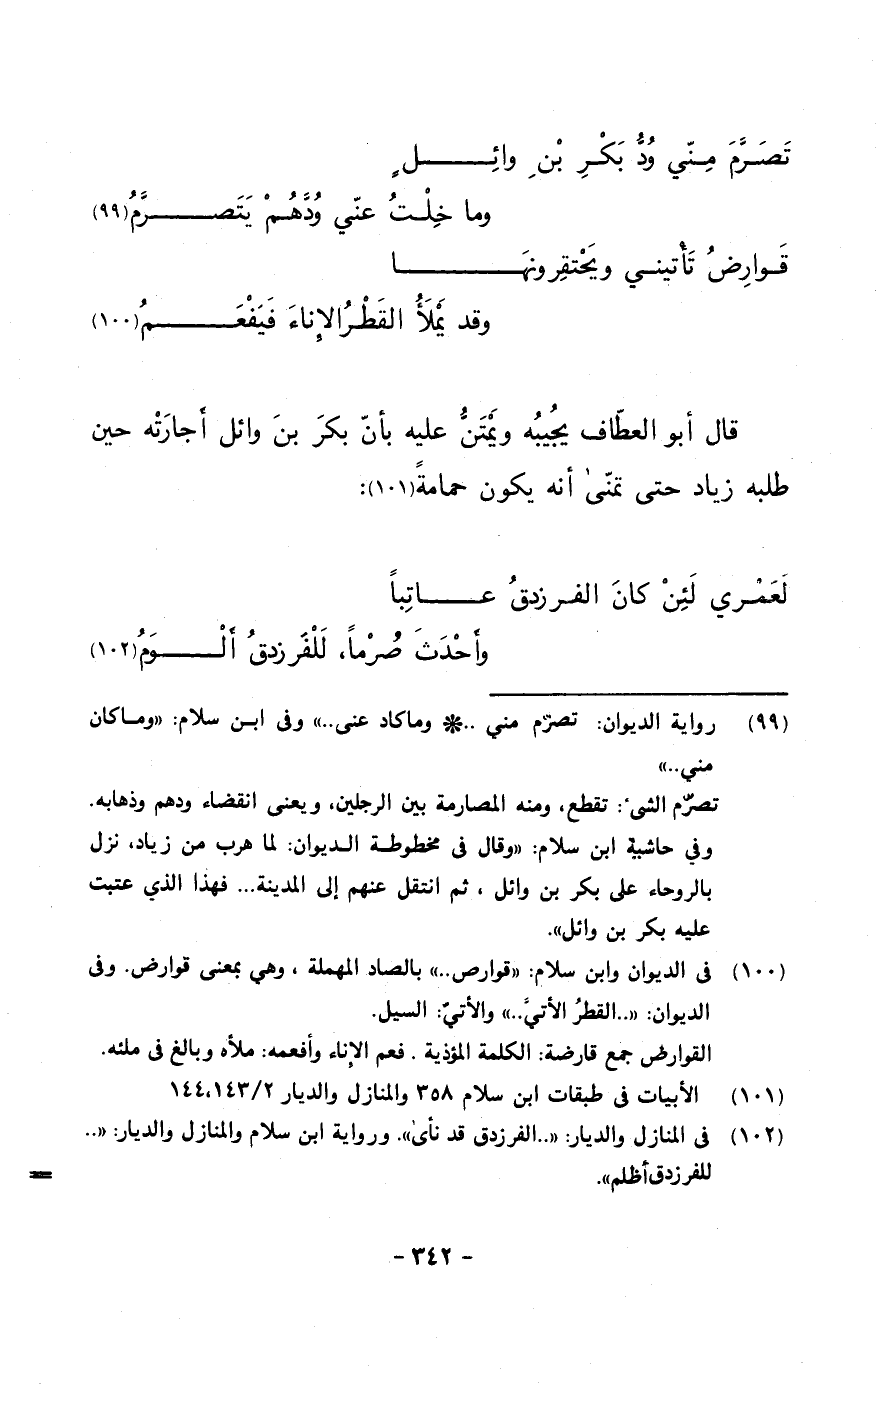 تَصَرَّمَ مِنّي وُدُّ بَكْرِ بْنِ وائِلٍ
وما خِلْتُ عنّي وُدَّهُمْ يَتَصَرَّمُ(٩٩)
قَوارِضُ تَأْتيني ويَحْتقِرونَهَا
وقد يَمْلَأُ القَطْرُ الإِناءَ فَيَفْعَمُ(١٠٠)
قال أبو العطّاف يجُيبُه ويَمْتَنُّ عليه بأنّ بكرَ بنَ وائل أجارَتْه حين
طلبه زياد حتى تمنّىٰ أنه يكون حمامةً(١٠١):
لَعَمْري لَئِنْ كانَ الفرزدقُ عاتِباً
وأَحْدَثَ صُرْماً، لَلْفَرزدقُ أَلْوَمُ(١٠٢)
(٩٩) رواية الديوان: تصرّم مني ..* وماكاد عنى..» وفى ابن سلام: «وماكان
مني..»
تصرّم الشىء: تقطع، ومنه المصارمة بين الرجلين، ويعنى انقضاء ودهم وذهابه.
وفي حاشية ابن سلام: «وقال فى مخطوطة الديوان: لما هرب من زياد، نزل
بالروحاء على بكر بن وائل ، ثم انتقل عنهم إلى المدينة... فهذا الذي عتبت
عليه بكر بن وائل».
(١٠٠) فى الديوان وابن سلام: «قوارص..» بالصاد المهملة ، وهي بمعنى قوارض. وفى
الديوان: «..القطرُ الأتيَّ..» والأتيّ: السيل.
القوارض جمع قارضة: الكلمة المؤذية . فعم الإناء وأفعمه: ملأه وبالغ فى ملئه.
(١٠١) الأبيات فى طبقات ابن سلام ٣٥٨ والمنازل والديار ١٤٤،١٤٣/٢
(١٠٢) فى المنازل والديار: «..الفرزدق قد نأىٰ». ورواية ابن سلام والمنازل والديار: «..
للفرزدق أظلم».
=
- ٣٤٢ -